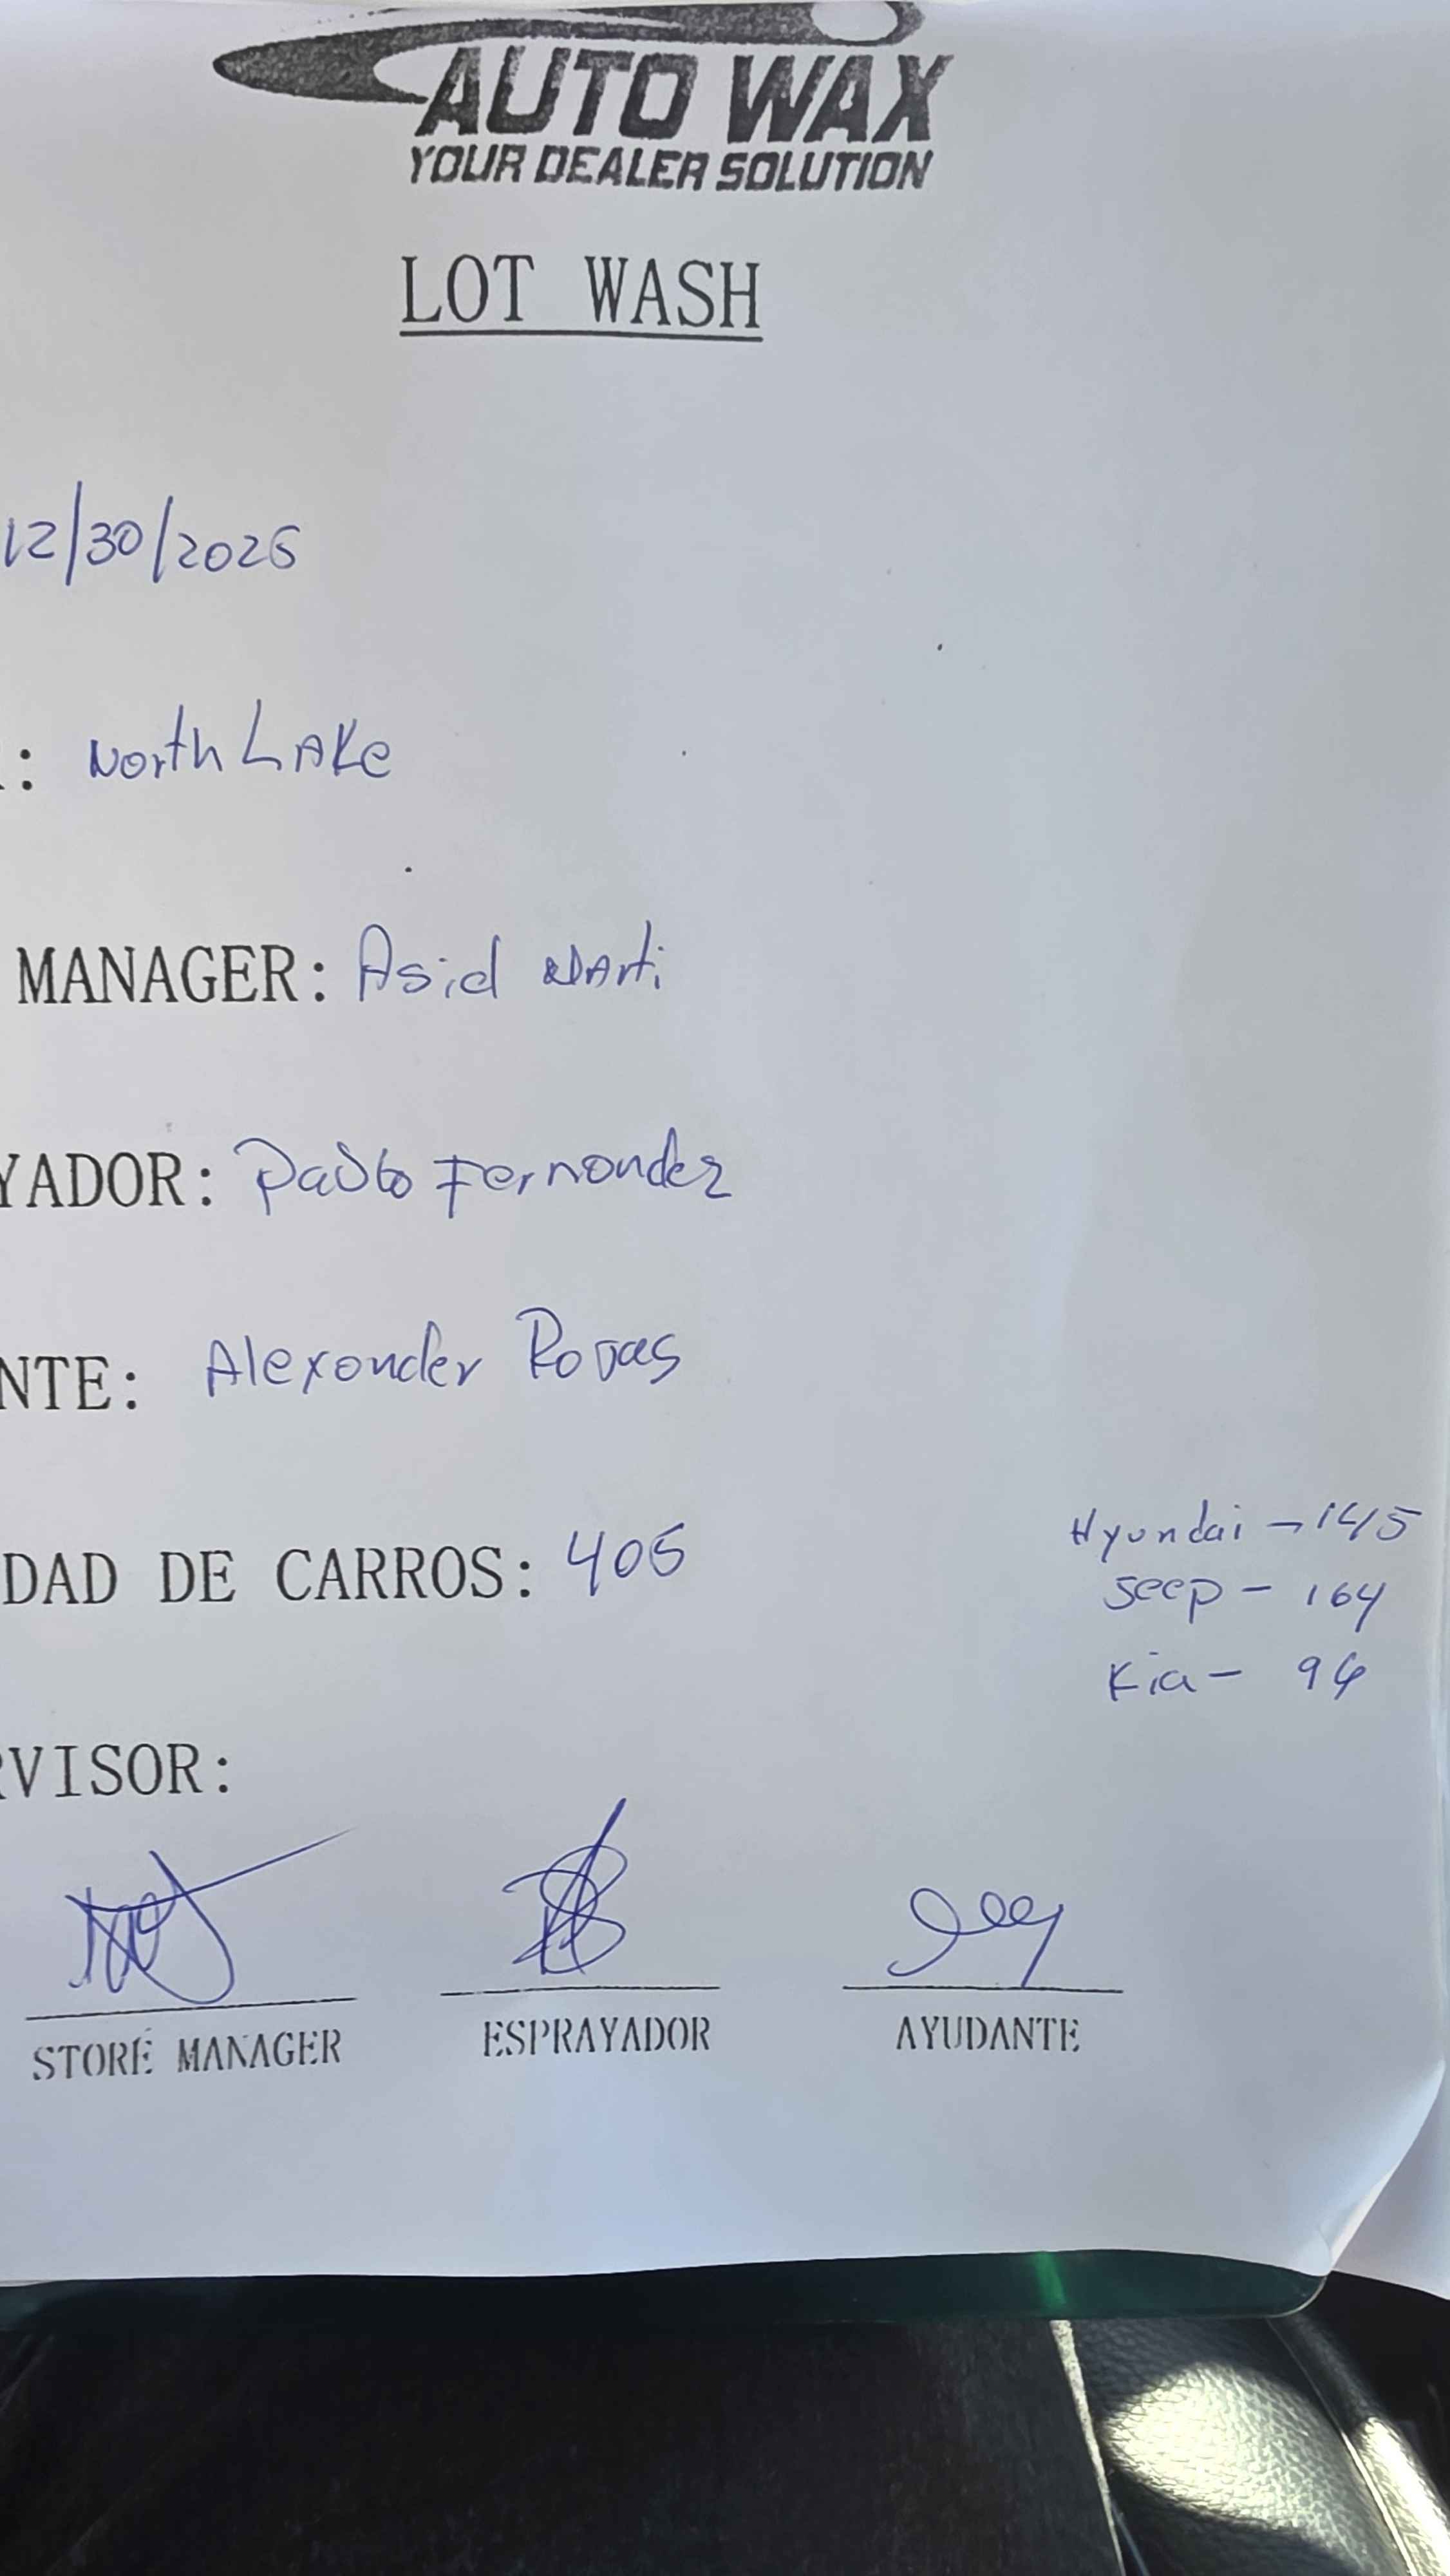 AUTO WAX
YOUR DEALER SOLUTION
LOT WASH
12/30/2025
: North LAKe
MANAGER: Asiel Marti
YADOR: Pablo Fernandez
NTE: Alexander Rojas
DAD DE CARROS: 405
Hyundai - 145
Jeep - 164
Kia - 96
RVISOR:
STORE MANAGER
ESPRAYADOR
AYUDANTE